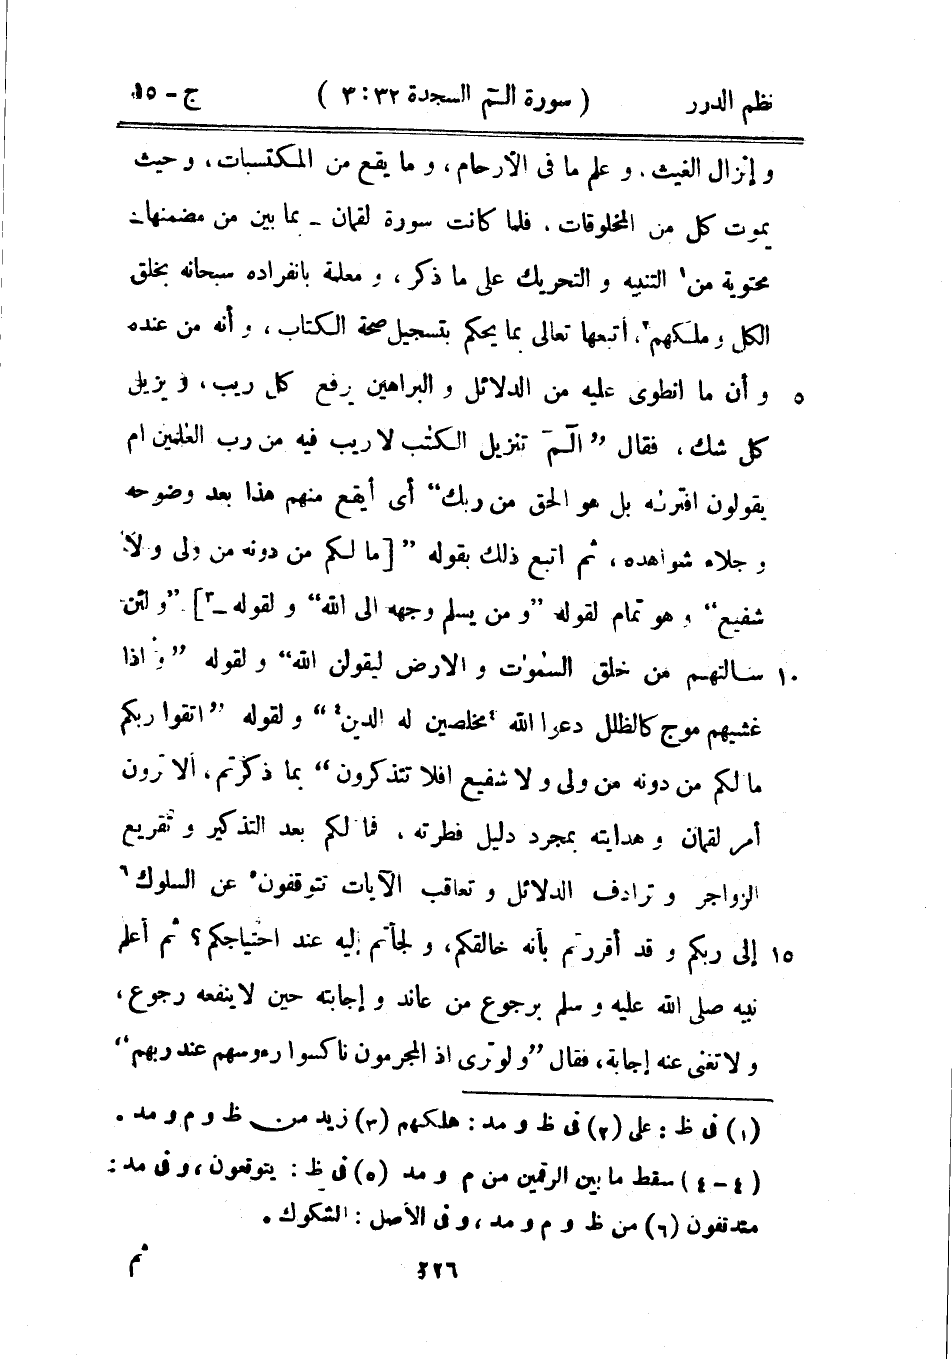 نظم الدرر ( سورة الٓـمّ السجدة ٣٢ : ٣ ) ج - ١٥
و إنزال الغيث . و علم ما فى الأرحام ، و ما يقع من المكتسبات ، و حيث
يموت كل من المخلوقات . فلما كانت سورة لقمان ـ بما بين من مضمنها ـ
محتوية من١ التنبيه و التحريك على ما ذكر ، و معلمة بانفراده سبحانه بخلق
الكل و ملكهم٢ ، أتبعها تعالى بما يحكم بتسجيل صحة الكتاب ، و أنه من عنده
٥ و أن ما انطوى عليه من الدلائل و البراهين يرفع كل ريب ، و يزيل
كل شك ، فقال ” الٓـمّٓ تنزيل الكتٰب لا ريب فيه من رب العٰلمين ام
يقولون افترٰٮه بل هو الحق من ربك “ أى أيقع منهم هذا بعد وضوحه
و جلاء شواهده ، ثم اتبع ذلك بقوله ” [ ما لكم من دونه من ولى و لا
شفيع “ و هو تمام لقوله ” و من يسلم وجهه الى الله “ و لقوله ـ٣] ” و لئن
١٠ سـالتهـم من خلق السمٰوٰت و الارض ليقولن الله “ و لقوله ” و اذا
غشيهم موج كالظلل دعوا الله ٤مخلصين له الدين٤ “ و لقوله ” اتقوا ربكم
ما لكم من دونه من ولى و لا شفيع افلا تتذكرون “ بما ذكرتم ، ألا ترون
أمر لقمان و هدايته بمجرد دليل فطرته . فما لكم بعد التذكير و تقريع
الزواجر و ترادف الدلائل و تعاقب الآيات تتوقفون٥ عن السلوك٦
١٥ إلى ربكم و قد أقررتم بأنه خالقكم ، و لجأتم إليه عند احتياجكم ؟ ثم أعلم
نبيه صلى الله عليه و سلم برجوع من عاند و إجابته حين لا ينفعه رجوع ،
و لا تغنى عنه إجابة ، فقال ” و لو ترى اذ المجرمون ناكسوا رءوسهم عند ربهم “
(١) فى ظ : على (٢) فى ظ و مد : هلكهم (٣) زيد من ظ و م و مد .
(٤ - ٤) سقط ما بين الرقمين من م و مد (٥) فى ظ : يتوقعون ، و فى مد :
متدتفون (٦) من ظ و م و مد ، و فى الأصل : الشكوك .
٢٢٦ ثم